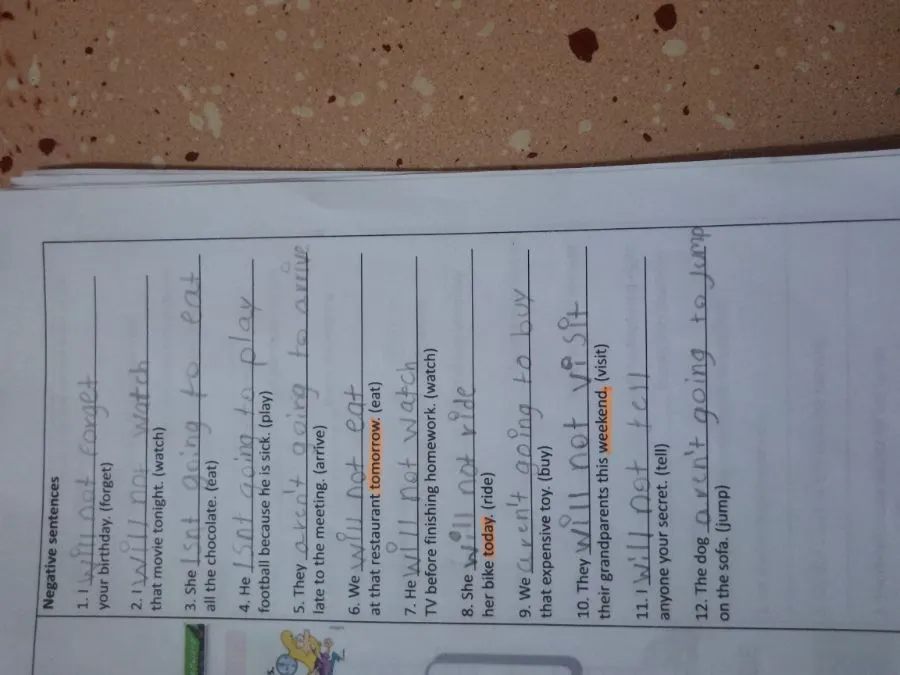 Negative sentences
1. I will not forget
your birthday. (forget)
2. I will not watch
that movie tonight. (watch)
3. She Isnt going to eat
all the chocolate. (eat)
4. He Isnt going to play
football because he is sick. (play)
5. They aren't going to arrive
late to the meeting. (arrive)
6. We will not eat
at that restaurant tomorrow. (eat)
7. He will not watch
TV before finishing homework. (watch)
8. She will not ride
her bike today. (ride)
9. We aren't going to buy
that expensive toy. (buy)
10. They will not visit
their grandparents this weekend. (visit)
11. I will not tell
anyone your secret. (tell)
12. The dog aren't going to Jump
on the sofa. (jump)